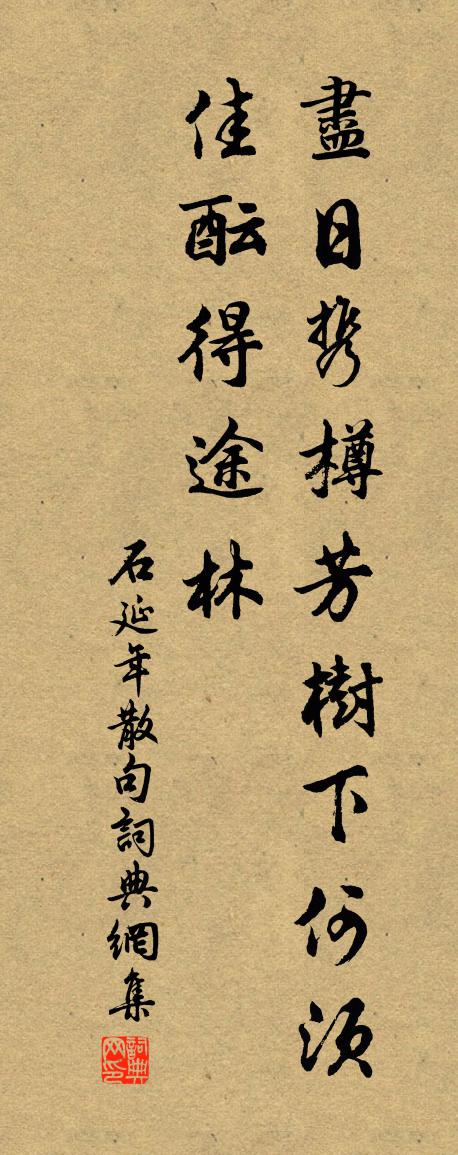 盡日携樽芳樹下何須
佳酝得途林
石延年散句詞典網集
詞典
网印